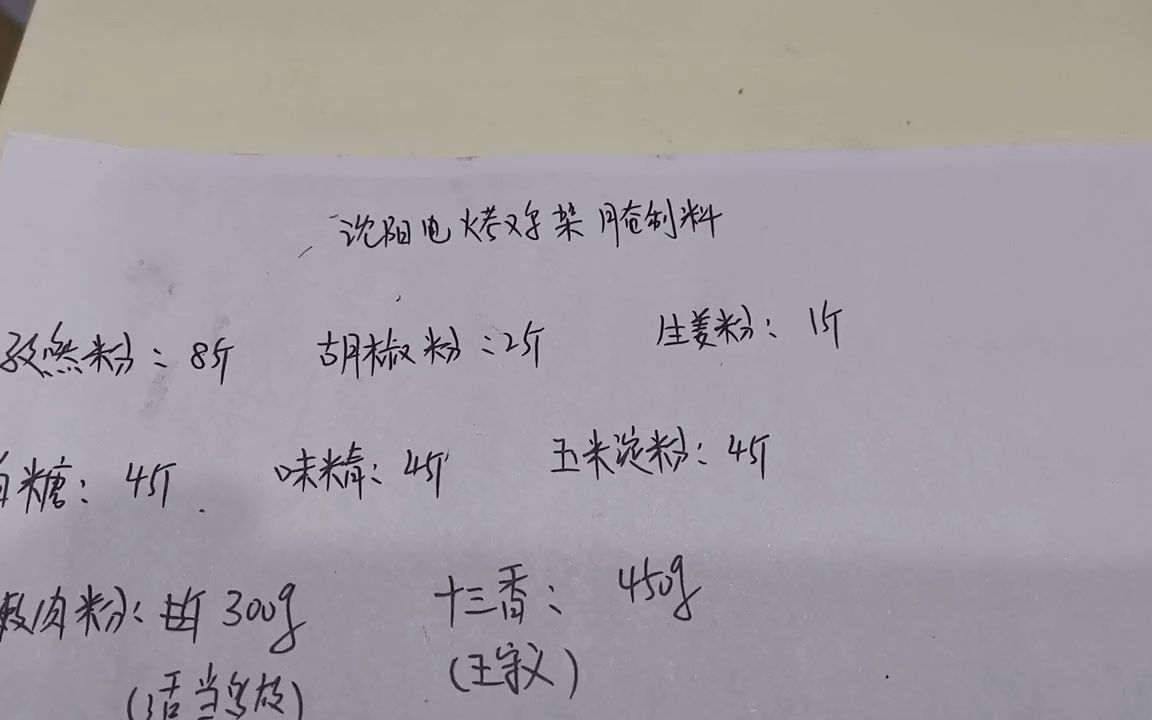 沈阳电烤鸡架腌制料
孜然粉：8斤 胡椒粉：2斤 生姜粉：1斤
白糖：4斤 味精：4斤 玉米淀粉：4斤
嫩肉粉：300g 十三香：450g
(适当多放) (王守义)